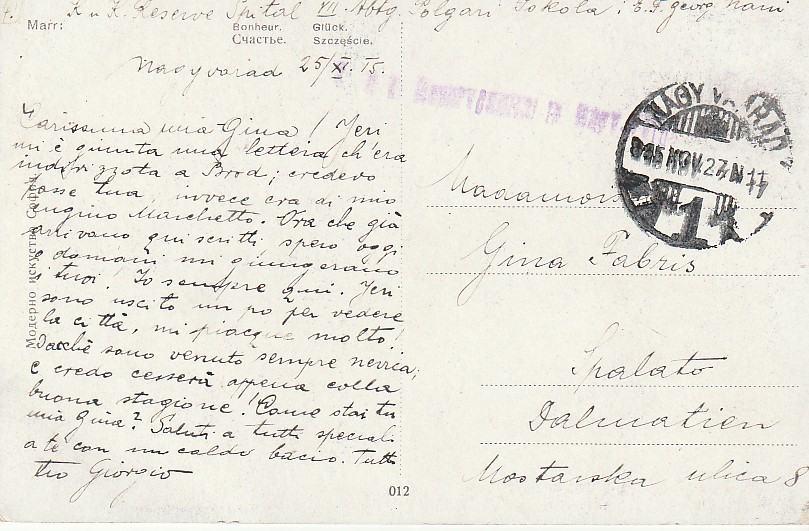 K u K. Reserve Spital VII Abtg. Polgari Iskola; E. F. Georg Nani
Marr:
Bonheur. Glück.
Счастье. Szczęście.
Nagyvárad 25/XI. 15.
Carissima mia Gina! Jeri
mi è giunta una lettera ch'era
indirizzata a Brod; credevo
fosse tua, invece era di mio
cugino Marchetto. Ora che già
arrivano qui scritti spero oggi
o domani mi giungeranno
i tuoi. Io sempre qui. Jeri
sono uscito un po' per vedere
la città, mi piacque molto!
Dacchè sono venuto sempre nevica;
e credo cesserà appena colla
buona stagione! Come stai tu
mia Gina? Saluti a tutti speciali
a te con un caldo bacio. Tutto
tuo Giorgio
Модерно искуство София
012
NAGYVÁRAD
915 NOV. 27. N 11
1
Gina Fabris
Spalato
Dalmatien
Mostarska ulica 8